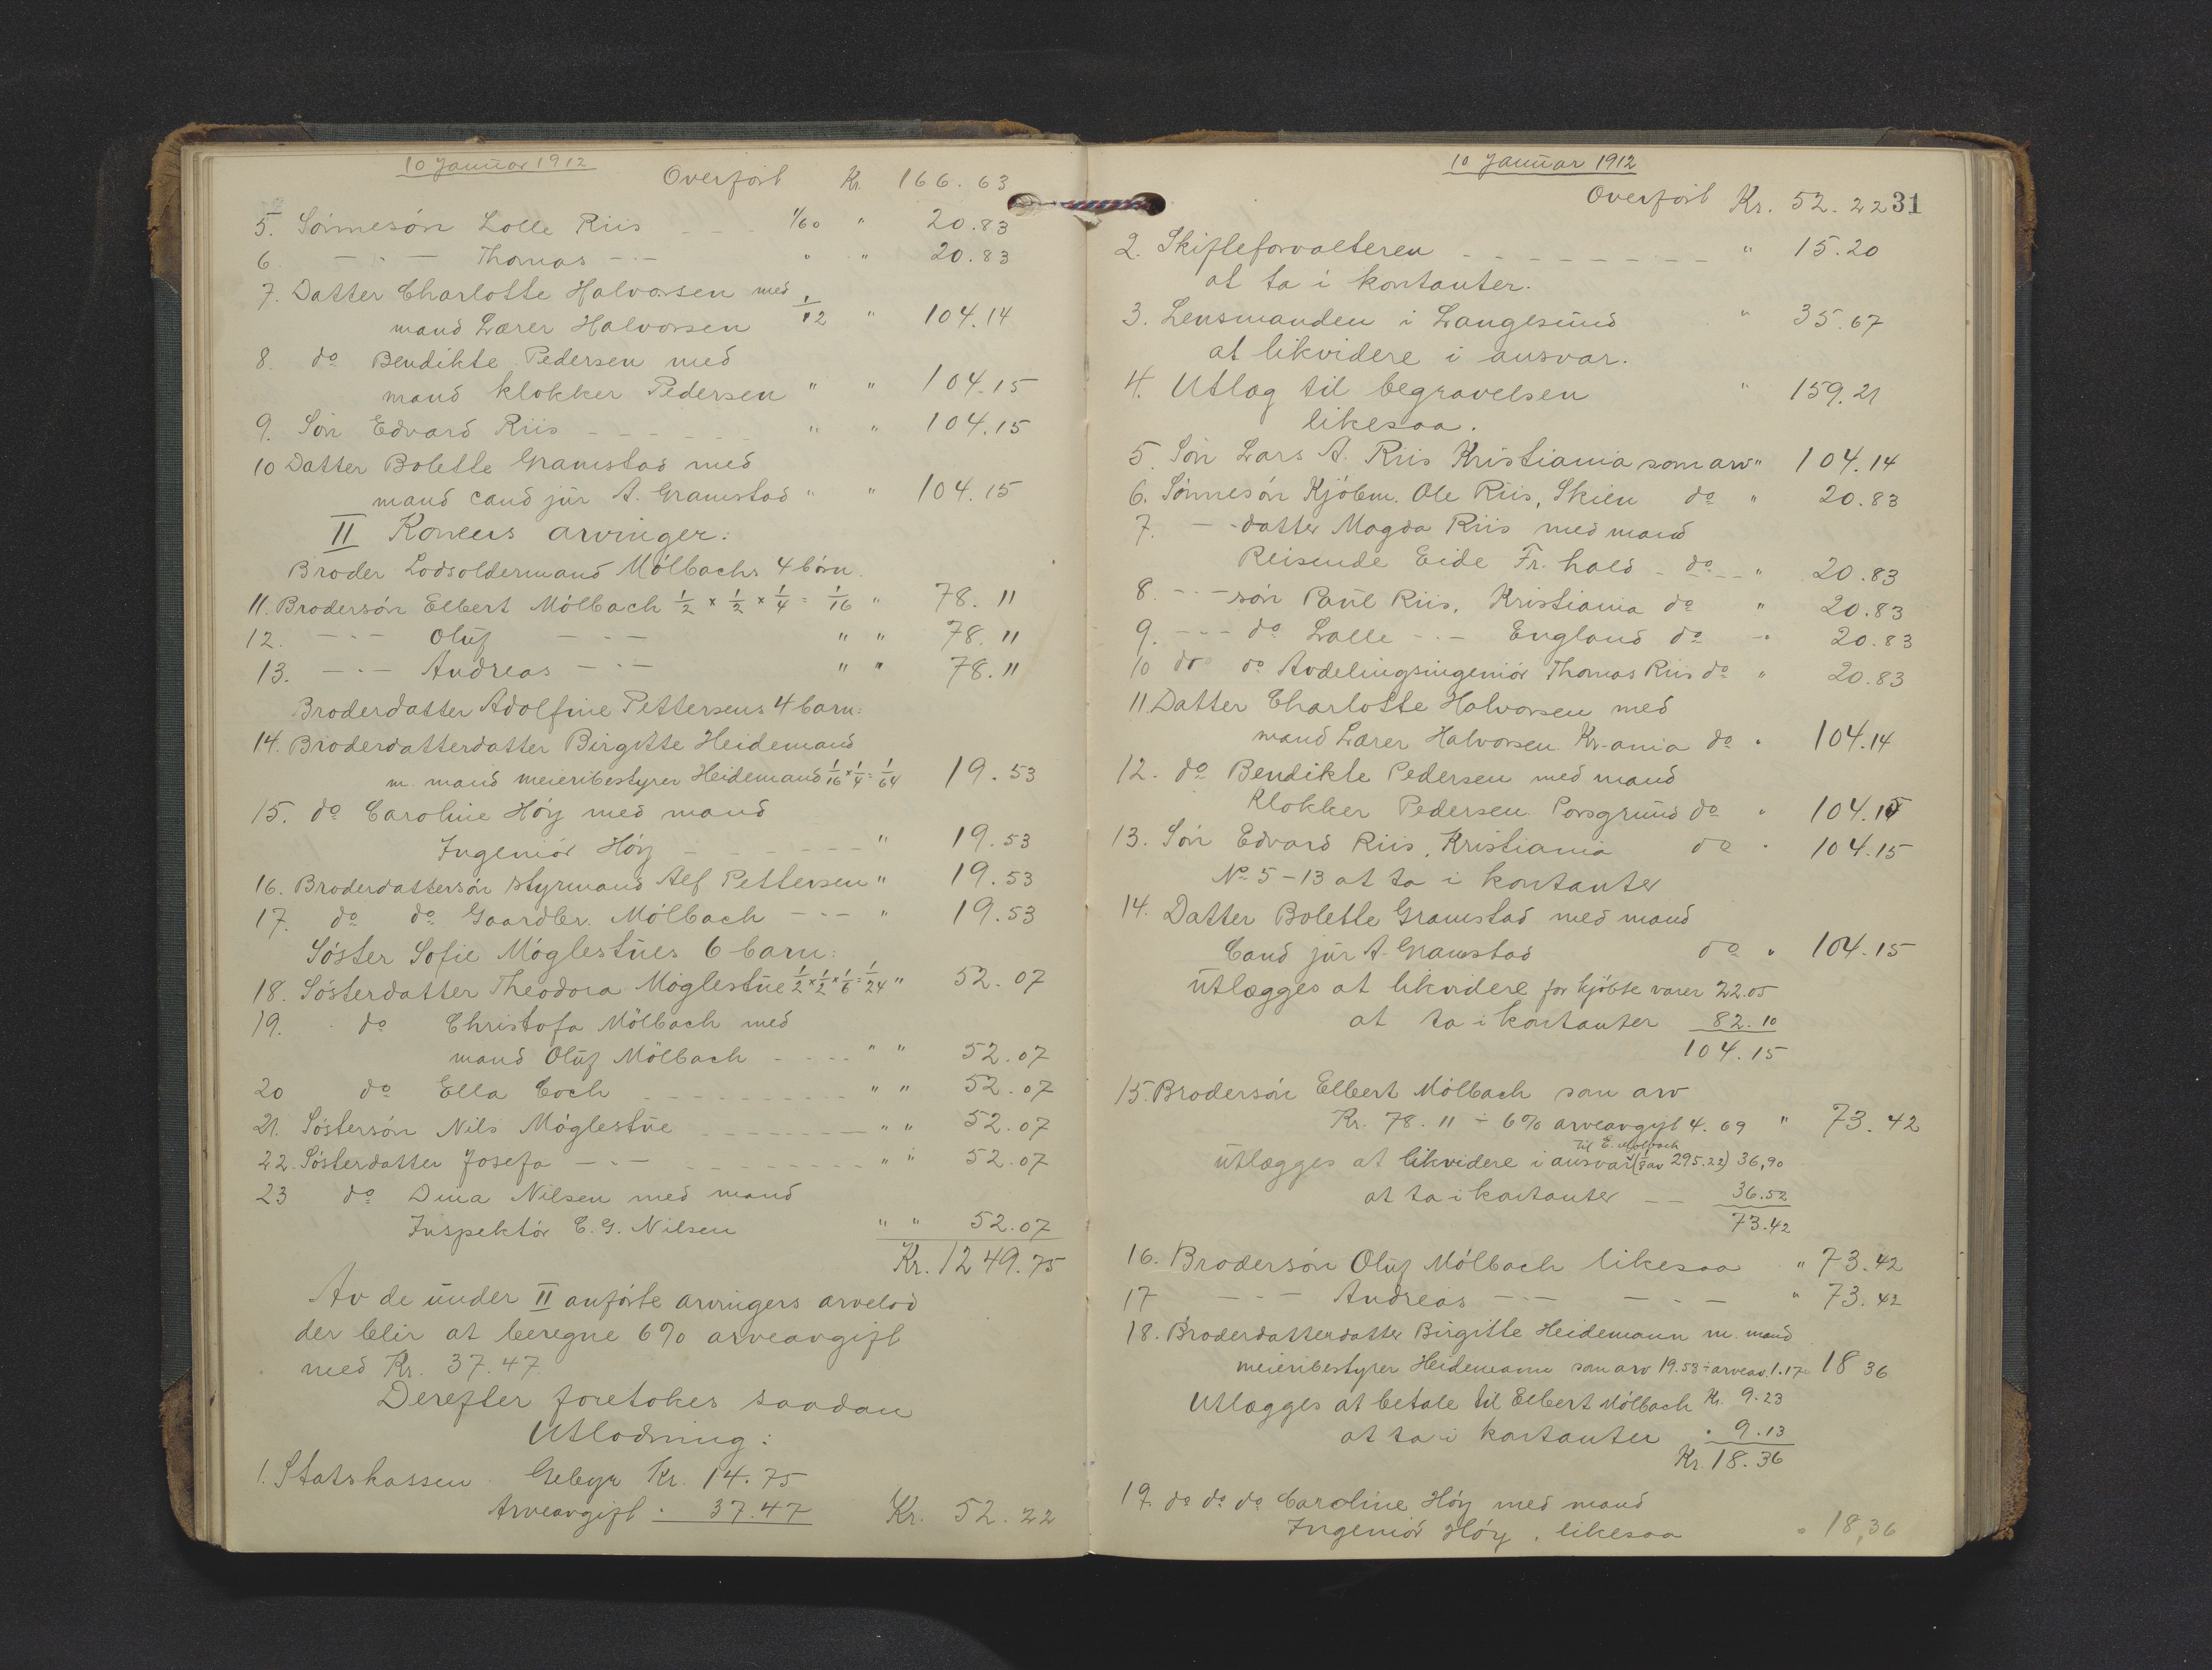 10 Januar 1912
Overført Kr. 166.63
5. Sönnesön Lolle Riis - - - 1/60 " 20.83
6. - " - Thomas - " - " " 20.83
7. Datter Charlotte Halvorsen med
mand Lærer Halvorsen 1/12 " 104.14
8. do Bendikte Pedersen med
mand klokker Pedersen " " 104.15
9. Sön Edvard Riis - - - - - " " 104.15
10 Datter Bolette Gramstad med
mand cand jur A. Gramstad " " 104.15
II Konens arvinger:
Broder Lodsoldermand Mölbachs 4 börn.
11. Brodersön Elbert Mölbach 1/2 x 1/2 x 1/4 = 1/16 " 78.11
12. - " - Oluf - " - " " 78.11
13. - " - Andreas - " - " " 78.11
Broderdatter Adolfine Pettersens 4 barn:
14. Broderdatterdatter Birgitte Heidemand
m. mand meieribestyrer Heidemand 1/16 x 1/4 = 1/64 19.53
15. do Caroline Höy med mand
Ingeniör Höy - - - - - - " 19.53
16. Broderdattersön styrmand Alf Pettersen " 19.53
17. do do Gaardbr. Mölbach - " - " 19.53
Söster Sofie Möglestües 6 barn:
18. Sösterdatter Theodora Möglestüe 1/2 x 1/2 x 1/6 = 1/24 " 52.07
19. do Christofa Mölbach med
mand Oluf Mölbach - - - - " " 52.07
20 do Ella Coch - - - - - - - - " " 52.07
21. Söstersön Nils Möglestüe - - - - - - " " 52.07
22. Sösterdatter Josefa - " - - - - - - - " " 52.07
23 do Dina Nilsen med mand
Inspektör C. G. Nilsen " " 52.07
Kr. 1249.75
Av de under II anförte arvingers arvelod
der blir at beregne 6% arveavgift
med Kr. 37.47.
Derefter foretokes saadan
Utlodning:
1. Statskassen Gebyr Kr. 14.75
Arveavgift " 37.47 Kr. 52.22
10 Januar 1912
Overført Kr. 52.22 31
2. Skifteforvalteren - - - - - - - - " 15.20
at ta i kontanter.
3. Lensmanden i Langesund " 35.67
at likvidere i ansvar.
4. Utlæg til begravelsen " 159.21
likesaa.
5. Sön Lars A. Riis Kristiania som arv " 104.14
6. Sönnesön Kjöbm. Ole Riis, Skien do " 20.83
7. - " - datter Magda Riis med mand
Reisende Eide Fr. hald - do - - " 20.83
8. - " - sön Paul Riis, Kristiania do " 20.83
9. - " - do Lalle - " - England do - " 20.83
10 do do Avdelingsingeniör Thomas Riis do " 20.83
11 Datter Charlotte Halvorsen med
mand Lærer Halvorsen Kr.ania do " 104.14
12. do Bendikte Pedersen med mand
Klokker Pedersen Porsgrund do " 104.15
13. Sön Edvard Riis, Kristiania do " 104.15
No 5-13 at ta i kontanter
14. Datter Bolette Gramstad med mand
Cand jur A. Gramstad do " 104.15
utlægges at likvidere for kjöbte varer 22.05
at ta i kontanter 82.10
104.15
15. Brodersön Elbert Mölbach som arv
Kr. 78.11 ÷ 6% arveavgift 4.69 " 73.42
til E. Mölbach
utlægges at likvidere i ansvar (1/8 av 295.22) 36,90
at ta i kontanter - - 36.52
73.42
16. Brodersön Oluf Mölbach likesaa " 73.42
17 - " - Andreas - " - - " - " 73.42
18. Broderdatterdatter Birgitte Heidemann m. mand
meieribestyrer Heidemann som arv 19.53 ÷ arveav. 1.17 18 36
Utlægges at betale til Elbert Mölbach Kr. 9.23
at ta i kontanter " 9.13
Kr. 18.36
19. do do do Caroline Höy med mand
Ingeniör Höy, likesaa " 18,36